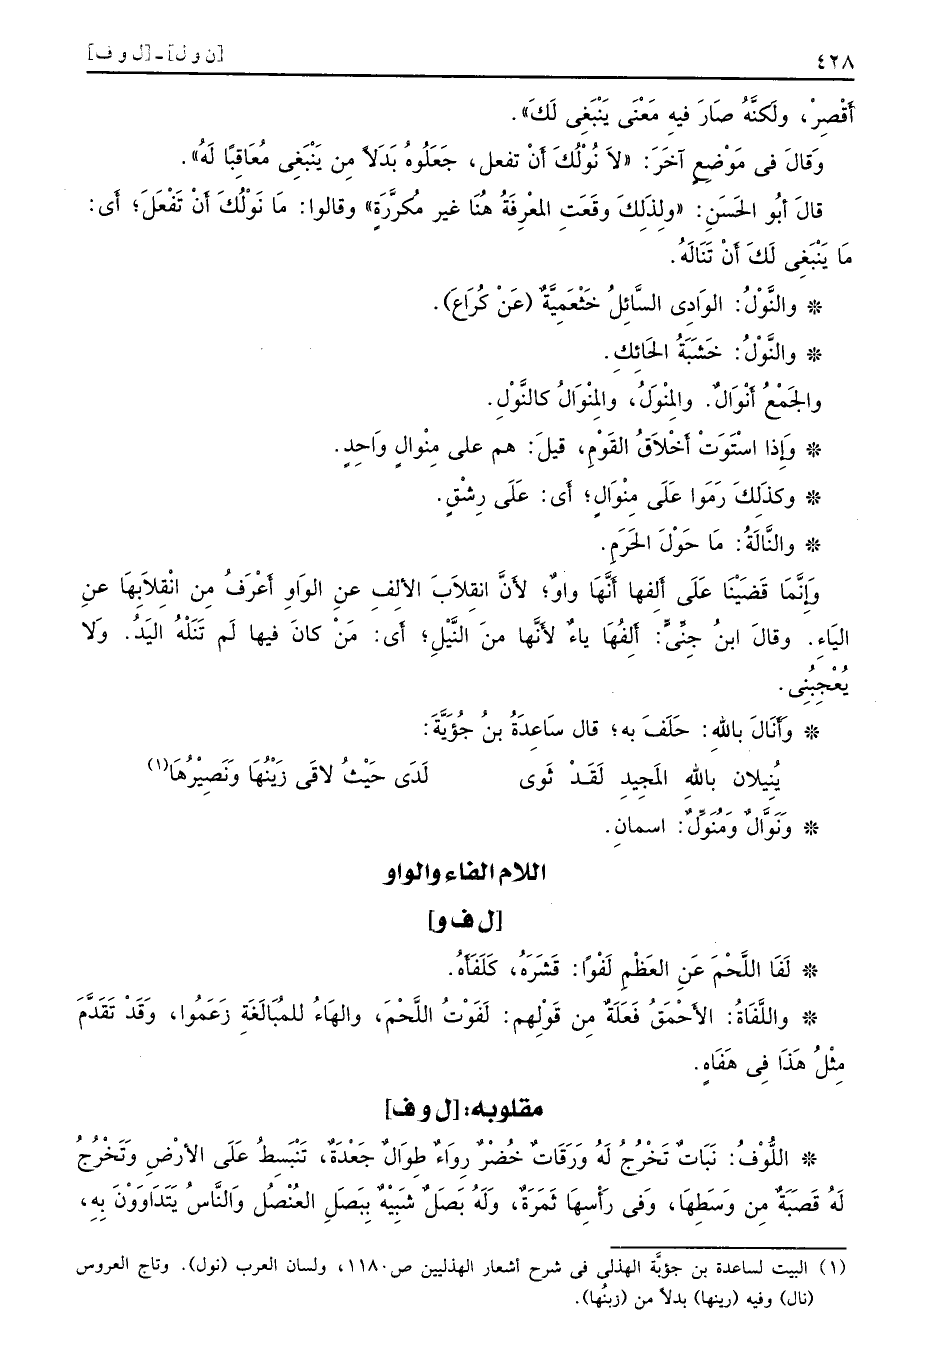 ٤٢٨
[ن و ل] ـ [ل و ف]
أَقْصِرْ، ولَكنَّهُ صَارَ فيه مَعْنَى يَنْبَغِى لَكَ».
وَقَالَ فى مَوْضِعٍ آخَرَ: «لاَ نُوْلُكَ أنْ تفعل، جَعَلُوهُ بَدَلاً من يَنْبَغِى مُعَاقِبًا لَهُ».
قَالَ أبُو الحَسَنِ: «ولِذلِكَ وقَعَتِ المعْرِفَةُ هنُا غير مُكرَّرَةٍ» وقالوا: مَا نَوْلُكَ أنْ تَفْعَلَ؛ أى:
مَا يَنْبَغِى لَكَ أنْ تَنَالَهُ.
* والنَّوْلُ: الوَادِى السَّائِلُ خَثْعَمِيَّةٌ (عَنْ كُرَاعَ).
* والنَّوْلُ: خَشَبَةُ الحَائِكِ.
والجَمْعُ أنْوَالٌ. والمِنْوَلُ، والمِنْوَالُ كالنَّوْلِ.
* وَإذا اسْتَوَتْ أخْلاَقُ القَوْمِ، قيلَ: هم على مِنْوالٍ وَاحِدٍ.
* وكذَلِكَ رَمَوا عَلَى مِنْوَالٍ؛ أى: عَلَى رِشْقٍ.
* والنَّالَةُ: مَا حَوْلَ الحَرَمِ.
وَإِنَّمَا قَضَيْنَا عَلَى ألفها أنَّهَا واوٌ؛ لأنَّ انقلاَبَ الألِفِ عنِ الوَاوِ أعْرَفُ من انْقِلاَبِهَا عنِ
اليَاء. وقالَ ابنُ جِنِّىٍّ: ألفُهَا ياءٌ لأنَّها منَ النَّيْلِ؛ أى: مَنْ كانَ فيها لَم تَنَلْهُ اليَدُ. وَلاَ
يُعْجِبُنِى.
* وَأنَالَ بالله: حَلَفَ به؛ قال سَاعِدَةُ بنُ جُؤَيَّةَ:
يُنِيلان بالله المَجِيدِ لَقَـدْ ثَوى لَدَى حَيْثُ لاقَى زَيْنُهَا ونَصِيرُهَا(١)
* وَنَوَّالٌ وَمُنَوِّلٌ: اسمانِ.
اللام الفاء والواو
[ل ف و]
* لَفَا اللَّحْمَ عَنِ العَظْمِ لَفْوًا: قَشَرَهُ، كَلَفَأَهُ.
* واللَّفَاةُ: الأَحْمَقُ فَعَلَةٌ من قَوْلِهم: لَفَوْتُ اللَّحْمَ، والهَاءُ للمُبَالَغَةِ زَعَمُوا، وقَدْ تَقَدَّمَ
مِثْلُ هَذَا فِى هَفَاهٍ.
مقلوبه: [ل و ف]
* اللُّوْفُ: نَبَاتٌ تَخْرُجُ لَهُ وَرَقَاتٌ خُضْرٌ رِواءٌ طِوَالٌ جَعْدَةٌ، تَنْبَسطُ عَلَى الأرْضِ وتَخْرُجُ
لَهُ قَصَبَةٌ من وَسَطِهَا، وَفى رَأْسِهَا ثَمَرَةٌ، وَلَهُ بَصَلٌ شَبِيْهٌ بِبَصَلِ العُنْصُلِ وَالنَّاسُ يَتَدَاوَوْنَ بِهِ،
(١) البيت لساعدة بن جؤيَّة الهذلى فى شرح أشعار الهذليين ص١١٨٠، ولسان العرب (نول). وتاج العروس
(نال) وفيه (رينها) بدلاً من (زينُها).